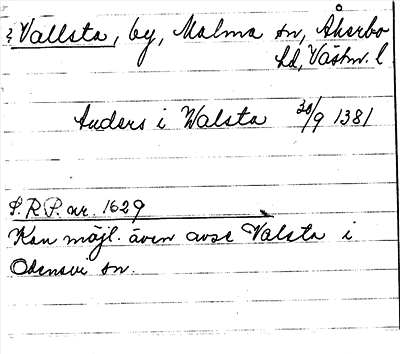 ? Vallsta, by, Malma sn, Åkerbo
hd, Västm. l.
Anders i Walsta 30/9 1381
S.R.P. nr. 1629
Kan möjl. även avse Valsta i
Odensvi sn.